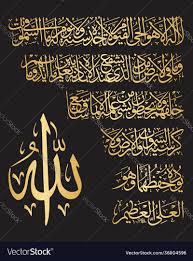 الله لا إله إلا هو الحي القيوم لا تأخذه سنة ولا نوم له ما في السموات
وما في الأرض من ذا الذي يشفع عنده إلا بإذنه يعلم ما بين أيديهم وما
خلفهم ولا يحيطون بشيء من علمه إلا بما شاء
وسع كرسيه السموات والأرض ولا
يؤده حفظهما وهو
العلي العظيم
الله
VectorStock